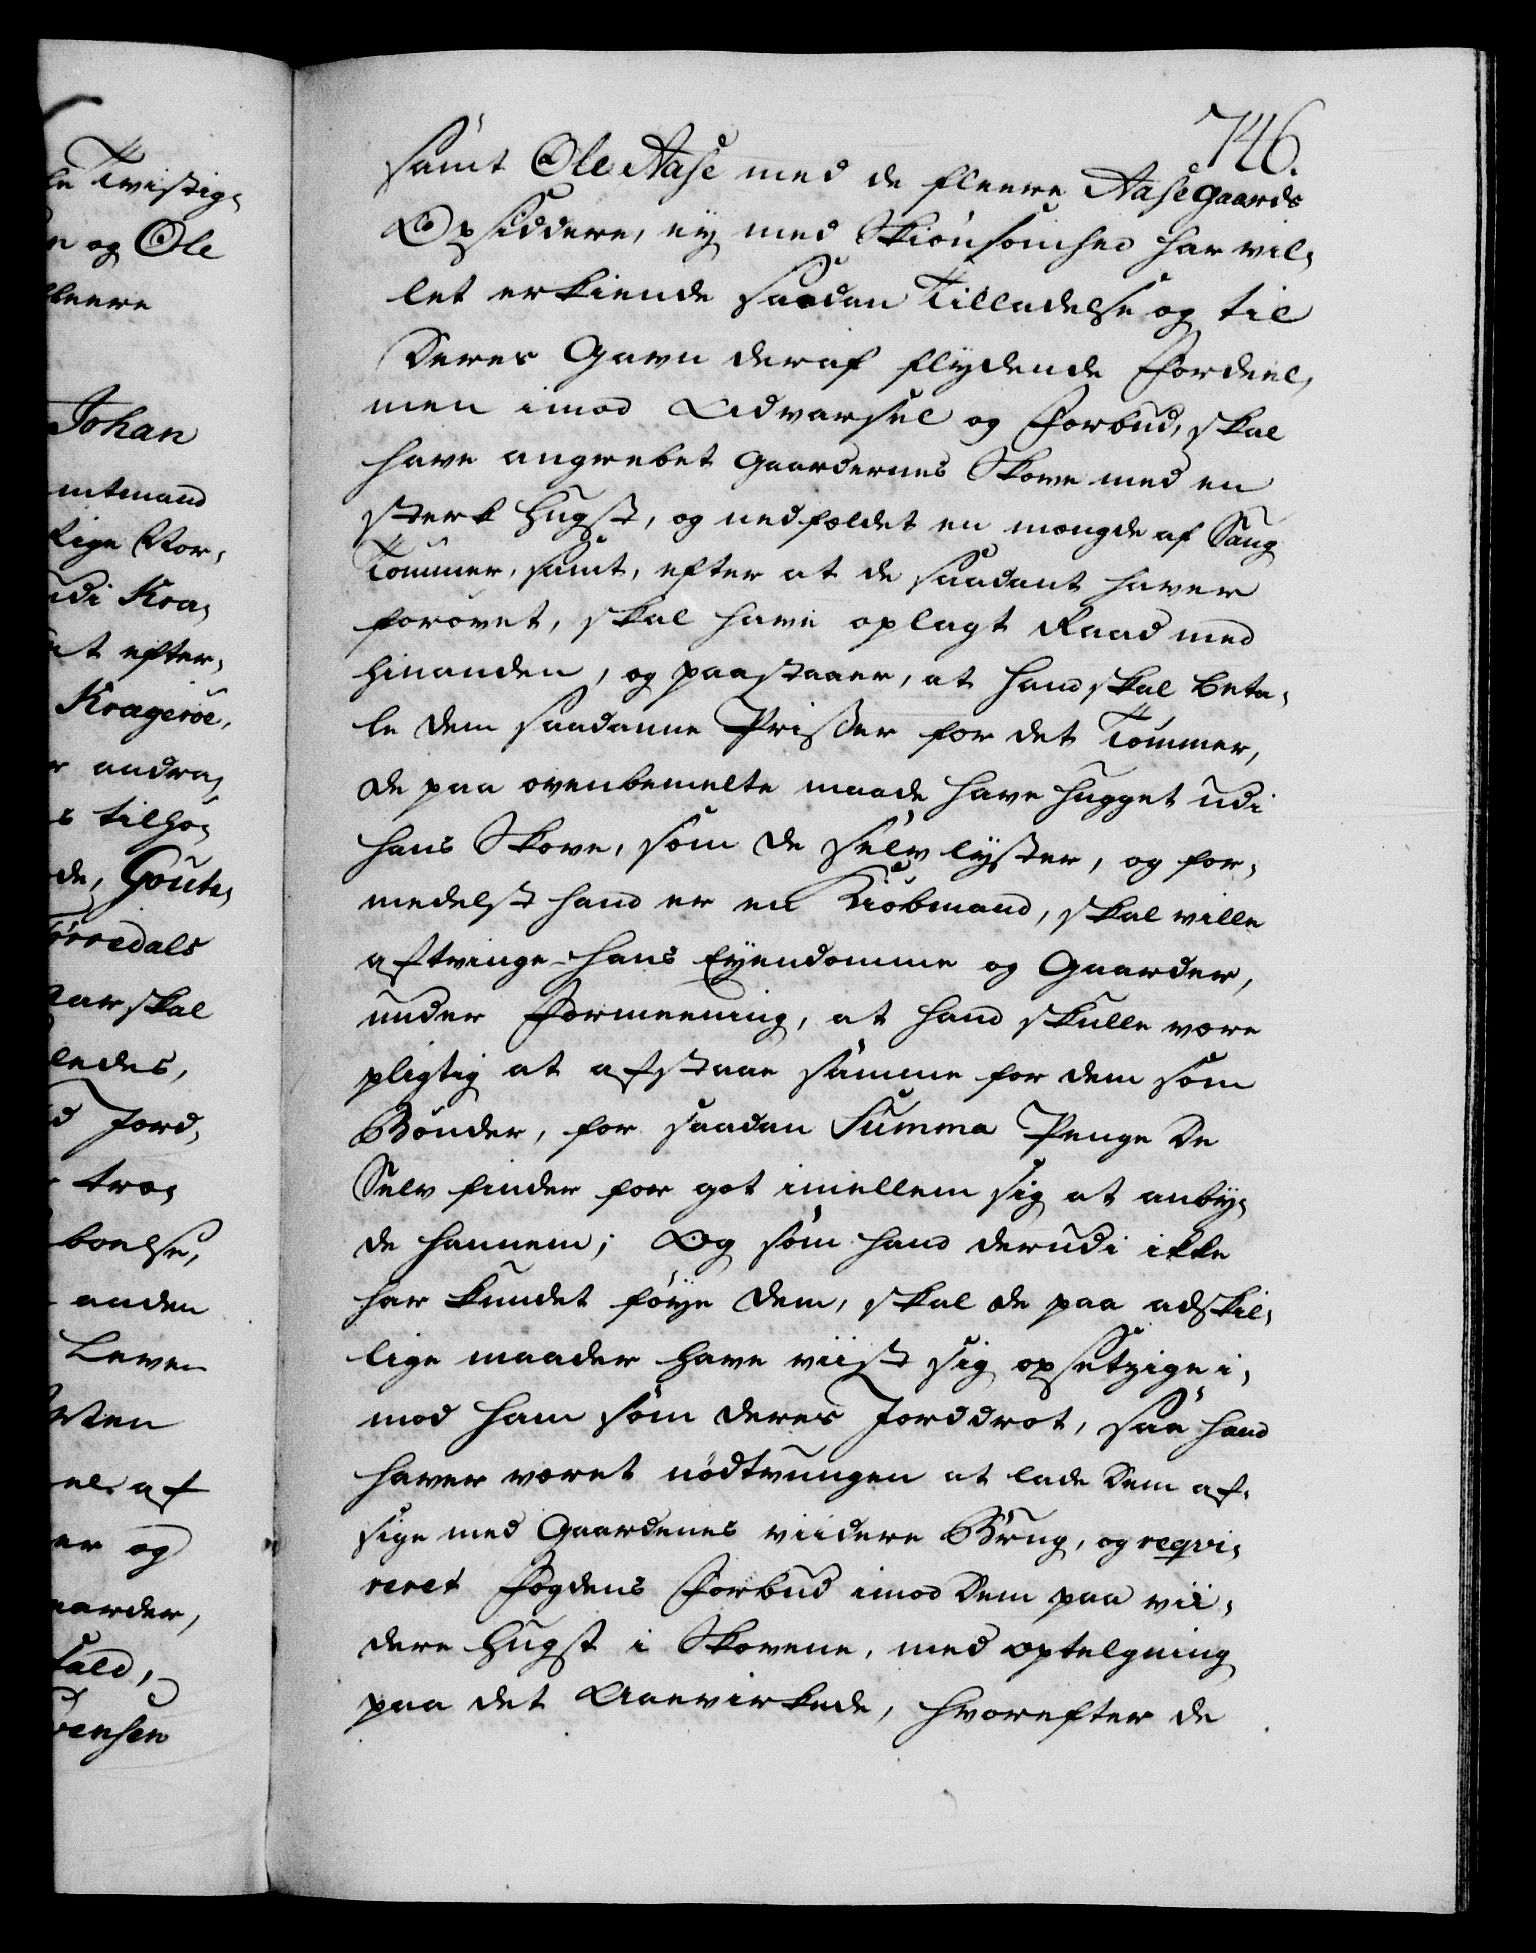 746.
samt Ole Aase med de fleere Aasegaards
Opsiddere, ej med Skiønsomhed har vil-
let erkiende saadan Tilladelse og til
deres Gavn deraf flydende Fordeel,
men imod Advarsel og Forbud, skal
have angrebet Gaardernes Skove med en
sterk Hugst, og nedfældet en mængde af Saug
Tømmer, samt, efter at de saadant haver
forøvet, skal have oplagt Raad med
hinanden, og paastaaer, at hand skal beta-
le dem saadanne Prisser for det Tømmer,
de paa ovenbemelte maade have hugget udi
hans Skove, som de selv lyster, og for-
medelst hand er en Kiøbmand, skal ville
aftvinge hans Eyendomme og Gaarder,
under Formeening, at hand skulle være
pligtig at afstaae samme for dem som
Bønder, for saadan Summa Penge de
Selv finder for got imellem sig at anby-
de hannem; Og som hand derudi ikke
har kundet føye dem, skal de paa adskil-
lige maader have viist sig opsetzige i-
mod ham som deres Jorddrot, saa hand
haver været nødtvungen at lade dem af-
sige med Gaardenes viidere Brug, og reqvi-
reret Fogdens Forbud imod dem paa vii-
dere Hugst i Skovene, med optelgning
paa det Aaevirkede, hvorefter de
le Tvistig-
n og Ole
fleere
Johan
mtmand
Rige Nor-
udi Kra-
at efter-
Kragerøe,
r andra-
s tilhø-
de, Goute-
Tørredals
aar skal
ledes,
d Jord-
træ-
boelse,
anden
Leve-
sten
el af
er og
aarder,
fald,
vensen